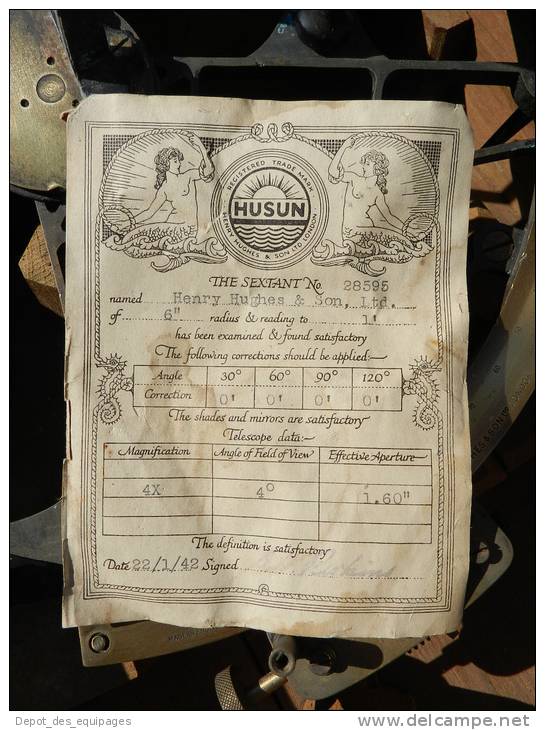 REGISTERED TRADE MARK
HUSUN
HENRY HUGHES & SON LTD. LONDON
THE SEXTANT No. 28595
named Henry Hughes & Son, Ltd.
of 6" radius & reading to 1'
has been examined & found satisfactory
The following corrections should be applied:—
Angle 30° 60° 90° 120°
Correction 0' 0' 0' 0'
The shades and mirrors are satisfactory
Telescope data:—
Magnification Angle of Field of View Effective Aperture
4X 4° 1.60"
The definition is satisfactory
Date 22/1/42 Signed
& SON LTD
MADE
Depot_des_equipages
www.delcampe.net